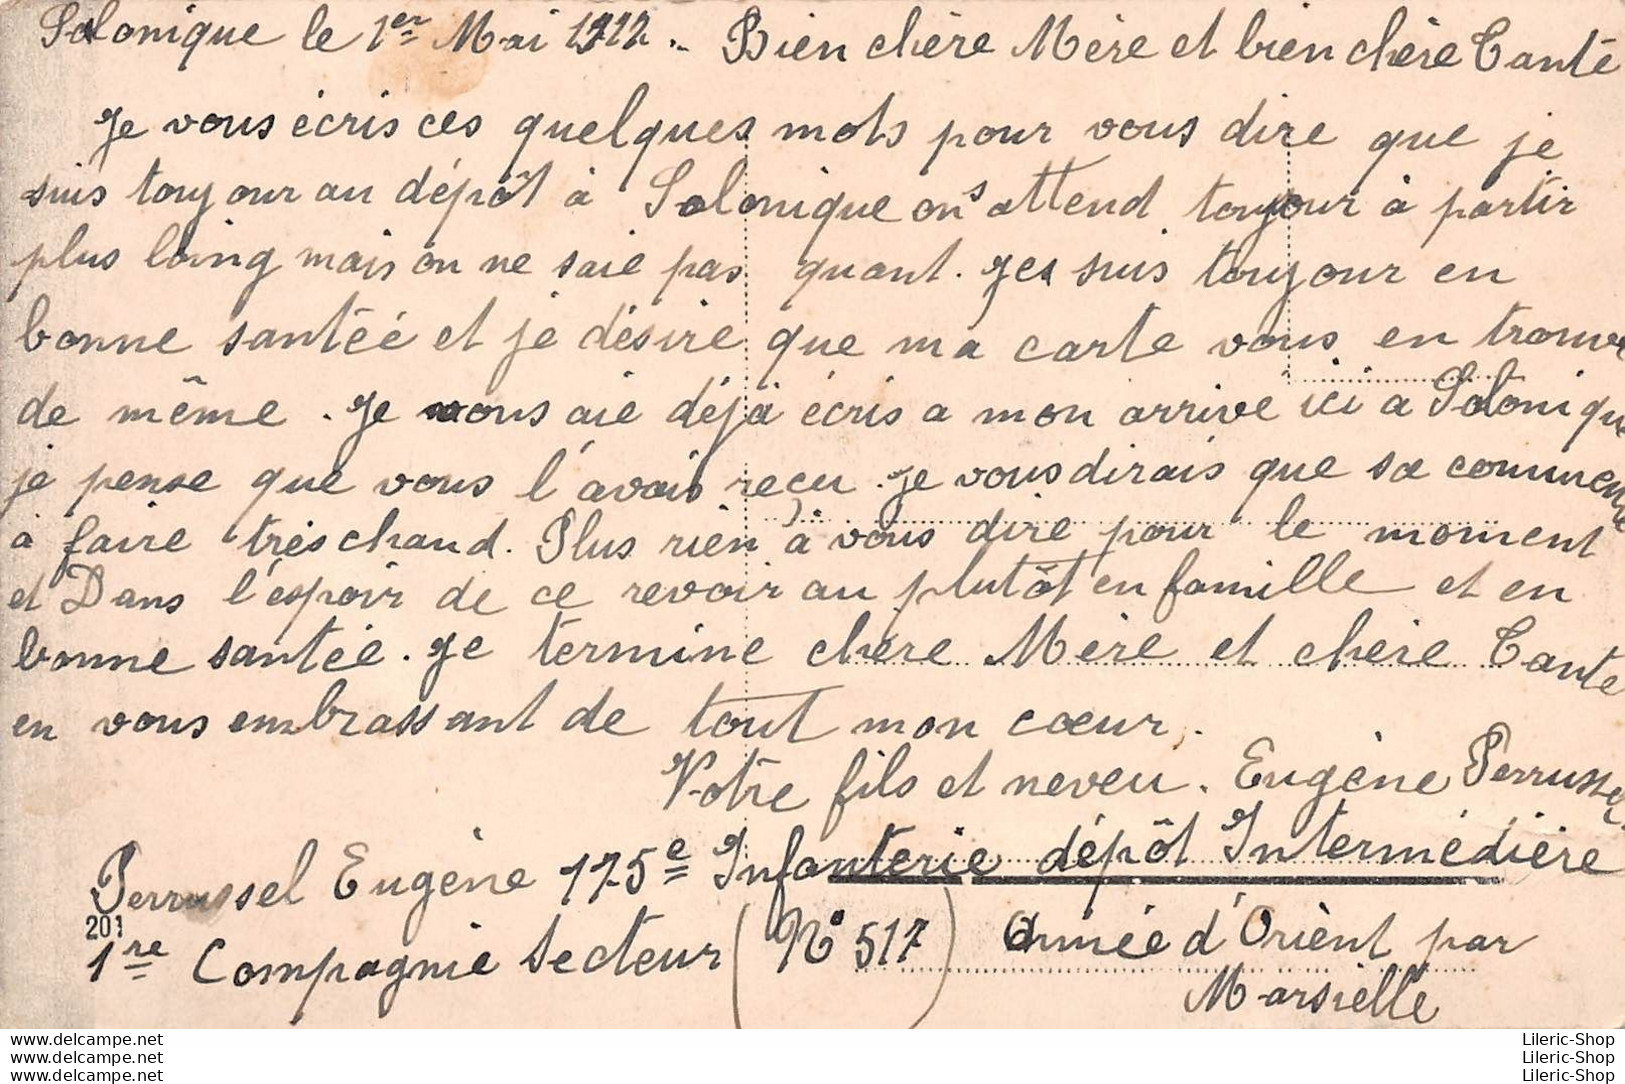 Salonique le 1er Mai 1917. Bien chère Mère et bien chère Tante
Je vous écris ces quelques mots pour vous dire que je
suis toujour au dépôt à Salonique ons attend toujour à partir
plus loing mais on ne saie pas quant. Jes suis toujour en
bonne santéé et je désire que ma carte vous en trouve
de même. Je vous aie déjà écris a mon arrive ici a Salonique
je pense que vous l'avais reçu. Je vous dirais que sa commence
à faire très chaud. Plus rien à vous dire pour le moment
et Dans l'espoir de ce revoir au plutôt en famille et en
bonne santée. Je termine chère Mère et chère Tante
en vous embrassant de tout mon cœur.
Votre fils et neveu. Eugène Perrussel
Perrussel Eugène 175e Infanterie dépôt Intermédière
201
1re Compagnie Secteur (N° 517) Armée d'Orient par
Marsielle
www.delcampe.net Lileric-Shop
www.delcampe.net Lileric-Shop
www.delcampe.net Lileric-Shop